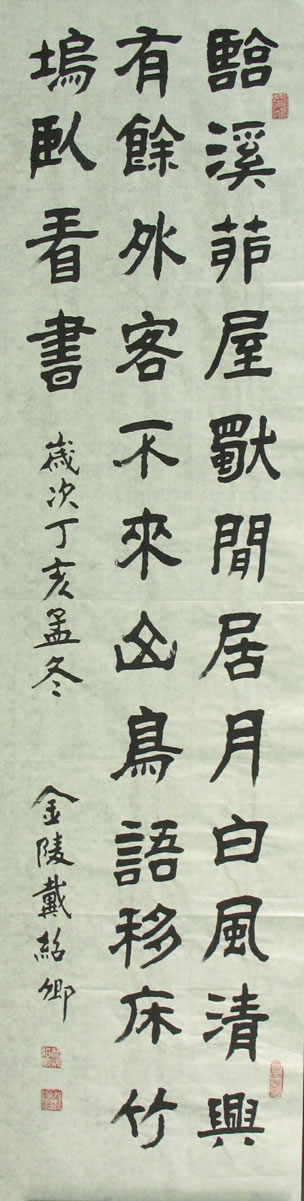 臨溪茆屋獨閒居月白風清興
有餘外客不來山鳥語移床竹
塢臥看書
歲次丁亥孟冬
金陵戴紹卿